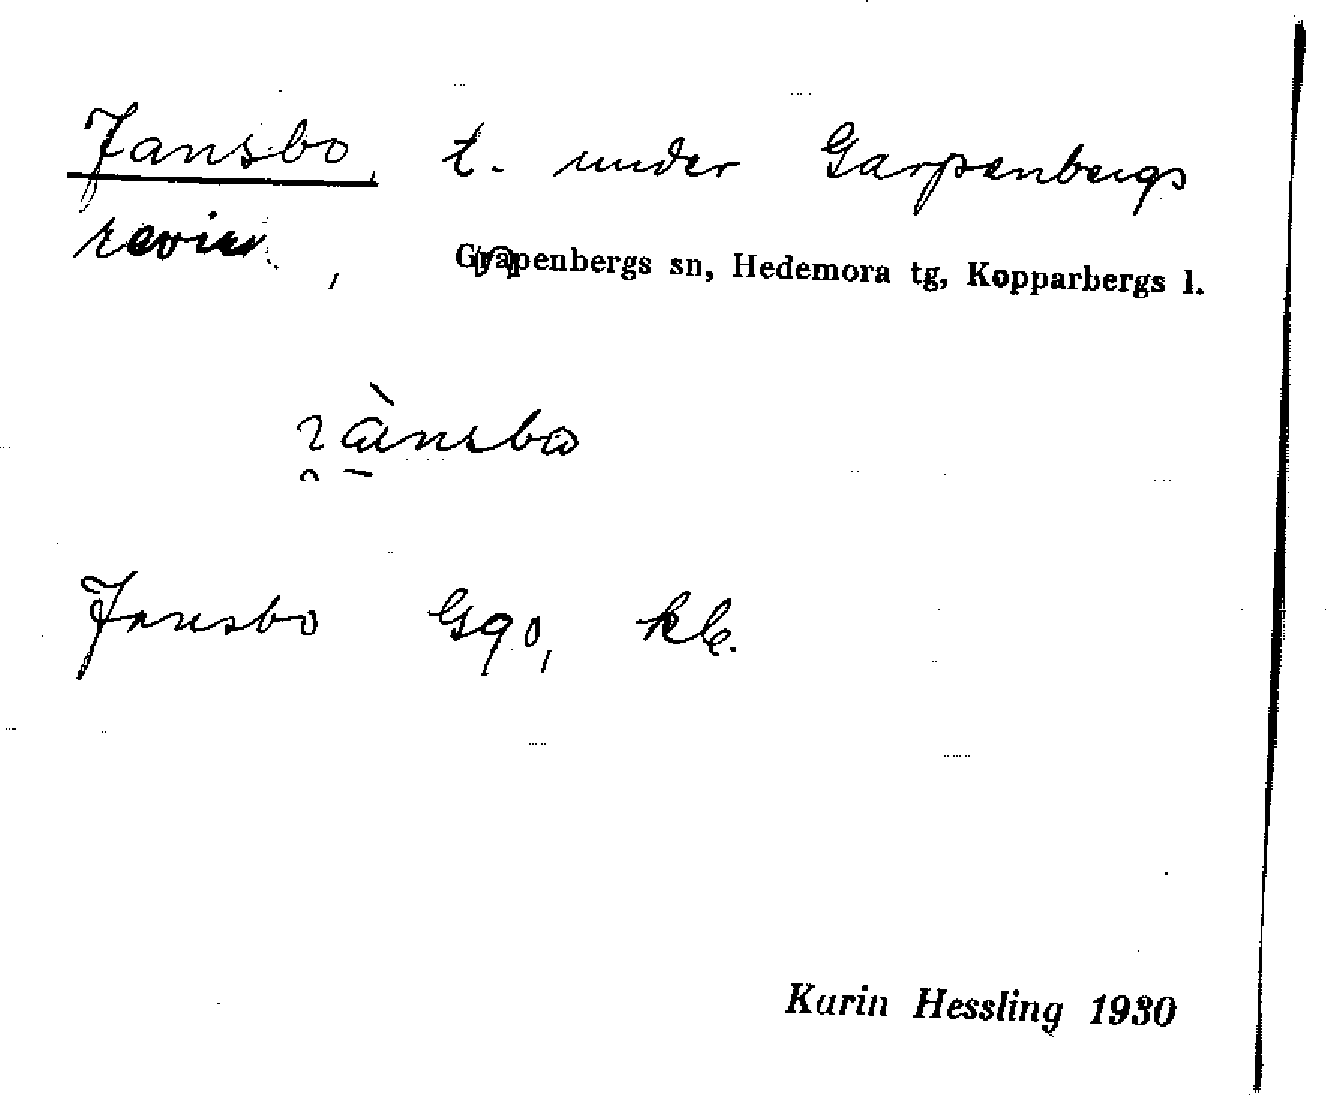 Jansbo, t. under Garpenbergs
revier, Grapenbergs sn, Hedemora tg, Kopparbergs l.
Jansbo Gqo, kle.
Karin Hessling 1930